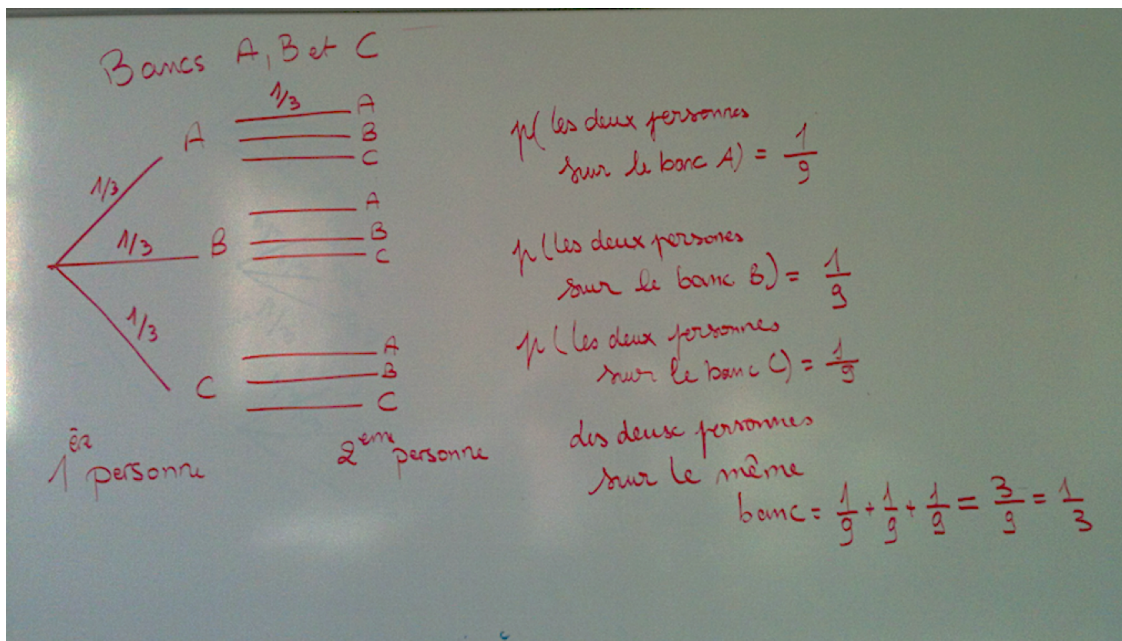 Bancs A, B et C
1/3
A
A
B
C
1/3
1/3
B
A
B
C
1/3
C
A
B
C
1ère personne
2ème personne
p( les deux personnes
sur le banc A) = 1/9
p(les deux persones
sur le banc B) = 1/9
p(les deux personnes
sur le banc C) = 1/9
des deux personnes
sur le même
banc = 1/9 + 1/9 + 1/9 = 3/9 = 1/3